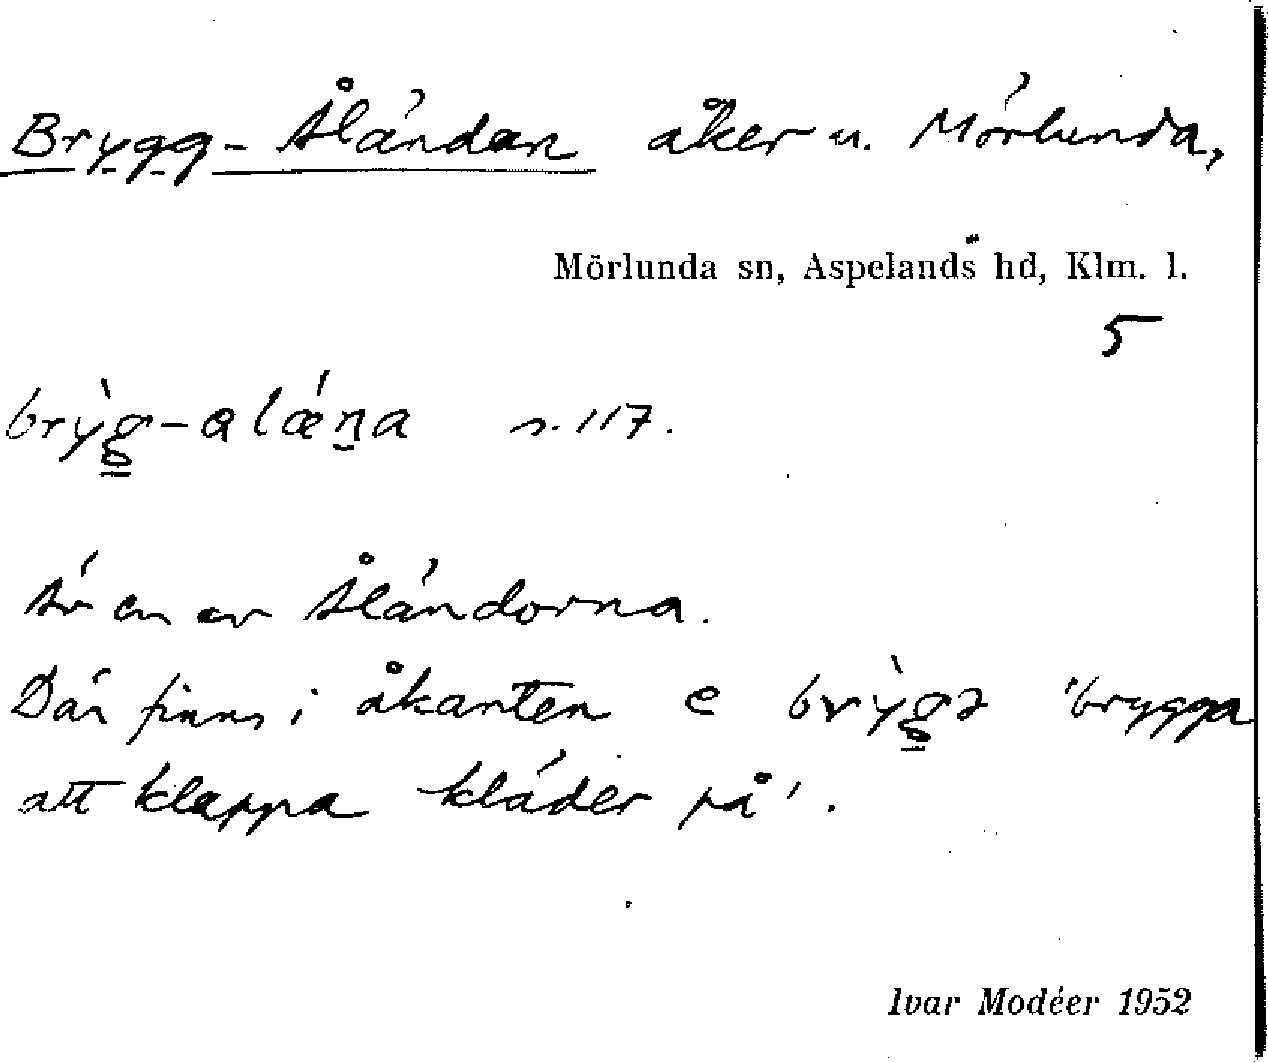 Brygg-Åländan åker u. Mörlunda,
Mörlunda sn, Aspelands hd, Klm. l.
5
brỳg-alǽna s. 117.
Är en av Åländorna.
Där finns i åkanten e brỳgə 'brygga
att klappa kläder på'.
Ivar Modéer 1952